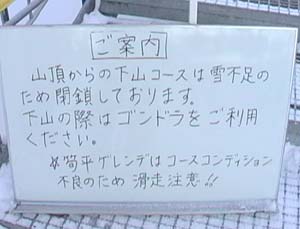 ご案内
山頂からの下山コースは雪不足の
ため閉鎖しております。
下山の際はゴンドラをご利用
ください。
※筍平ゲレンデはコースコンディション
不良のため 滑走注意!!